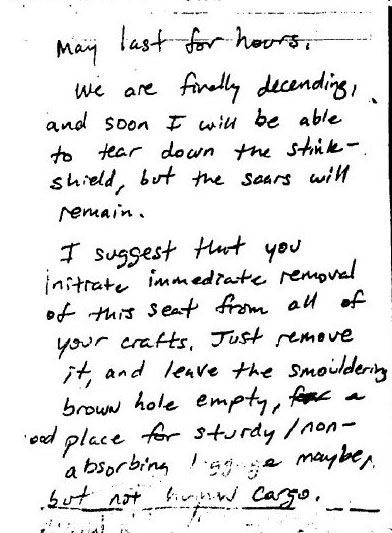 May last for hours.
We are finally decending,
and soon I will be able
to tear down the stink-
shield, but the scars will
remain.
I suggest that you
initrate immediate removal
of this seat from all of
your crafts. Just remove
it, and leave the smouldering
brown hole empty, for a
ood place for sturdy/non-
absorbing maybe,
but not human cargo.